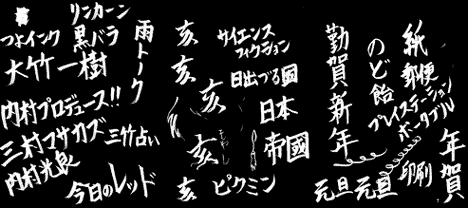 リンカーン
つよインク
黒バラ
雨トーク
大竹一樹
内村プロデュース!!
三村マサカズ
三竹占い
内村光良
今日のレッド
亥
亥
亥
亥
亥
サイエンス
フィクション
日出づる國
日本
帝國
ピクミン
勤賀新年
のど飴
紙
郵便
プレイステーション
ポータブル
元旦元旦
印刷
年賀